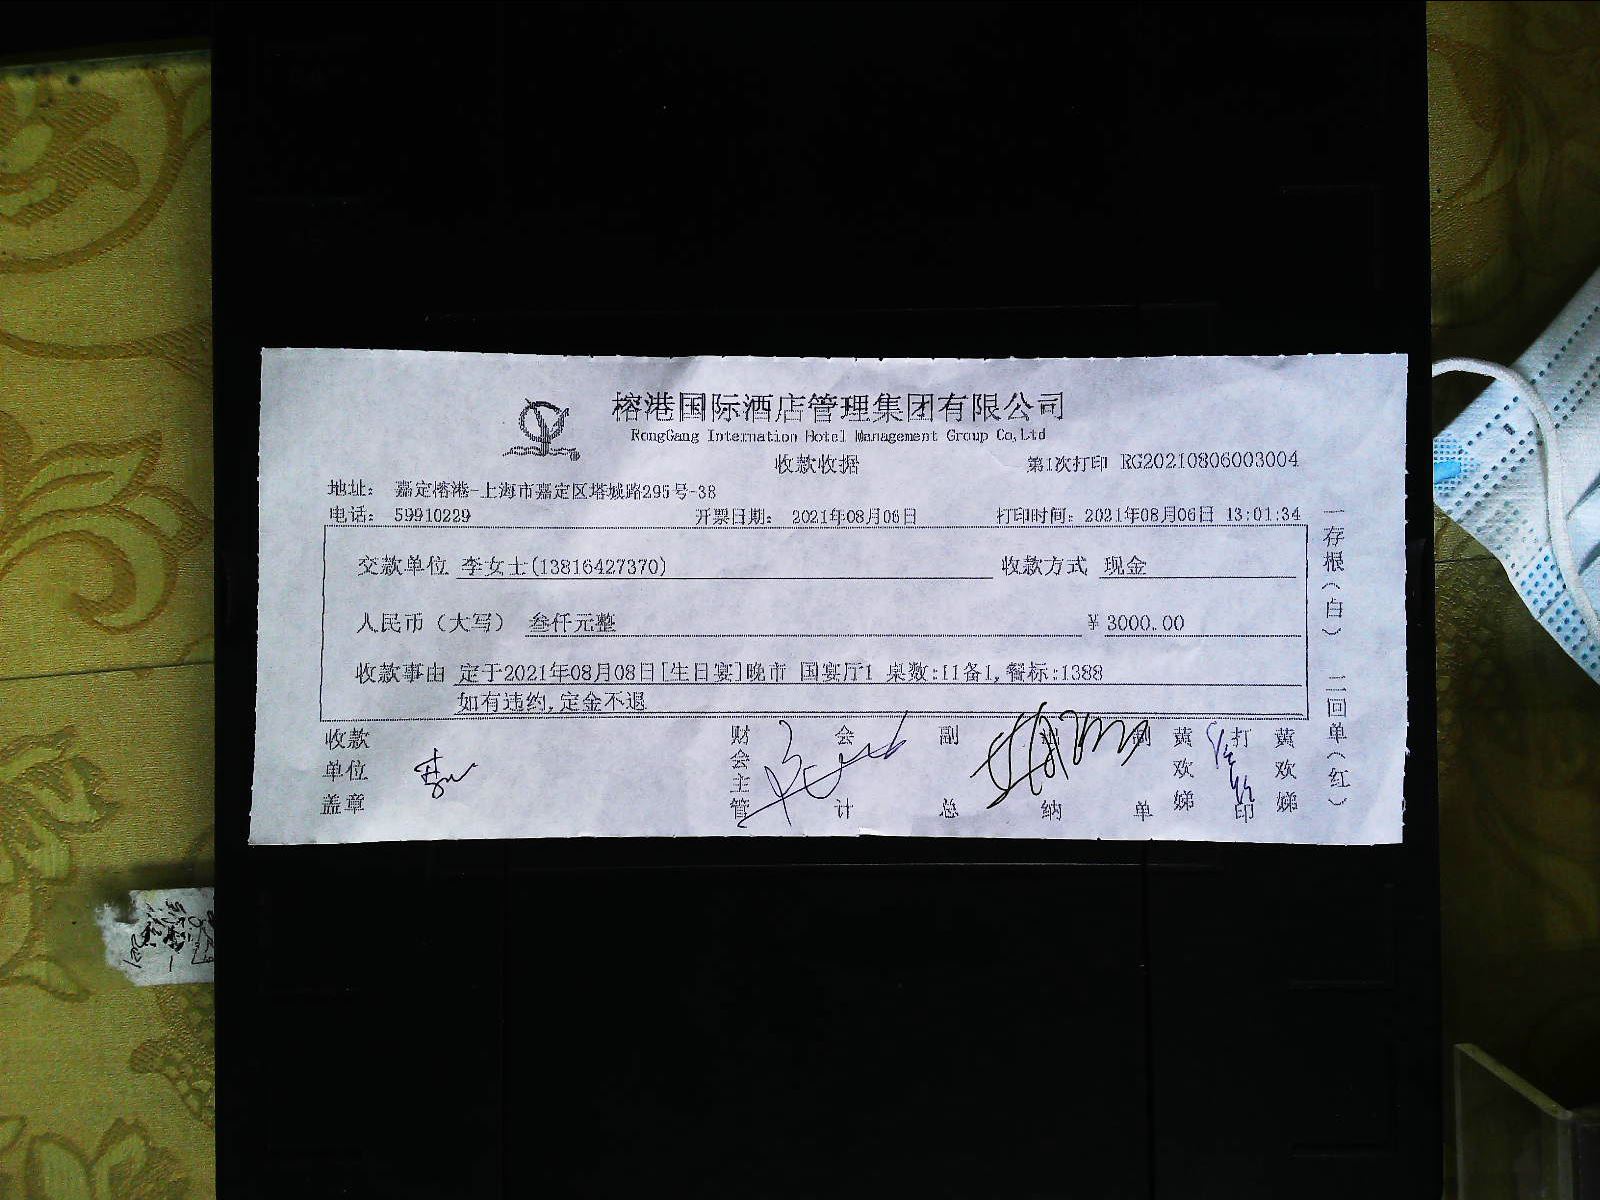 榕港国际酒店管理集团有限公司
RongGang Internation Hotel Management Group Co,Ltd
收款收据
第1次打印 RG20210806003004
地址： 嘉定榕港-上海市嘉定区塔城路295号-38
电话： 59910229 开票日期： 2021年08月06日 打印时间：2021年08月06日 13:01:34
交款单位 李女士(13816427370) 收款方式 现金
人民币（大写） 叁仟元整 ￥3000.00
收款事由 定于2021年08月08日[生日宴]晚市 国宴厅1 桌数:11备1,餐标:1388
如有违约,定金不退
收款单位盖章
财会主管
会计
副总
出纳
制单
黄欢娣
打印
黄欢娣
一存根（白） 二回单（红）